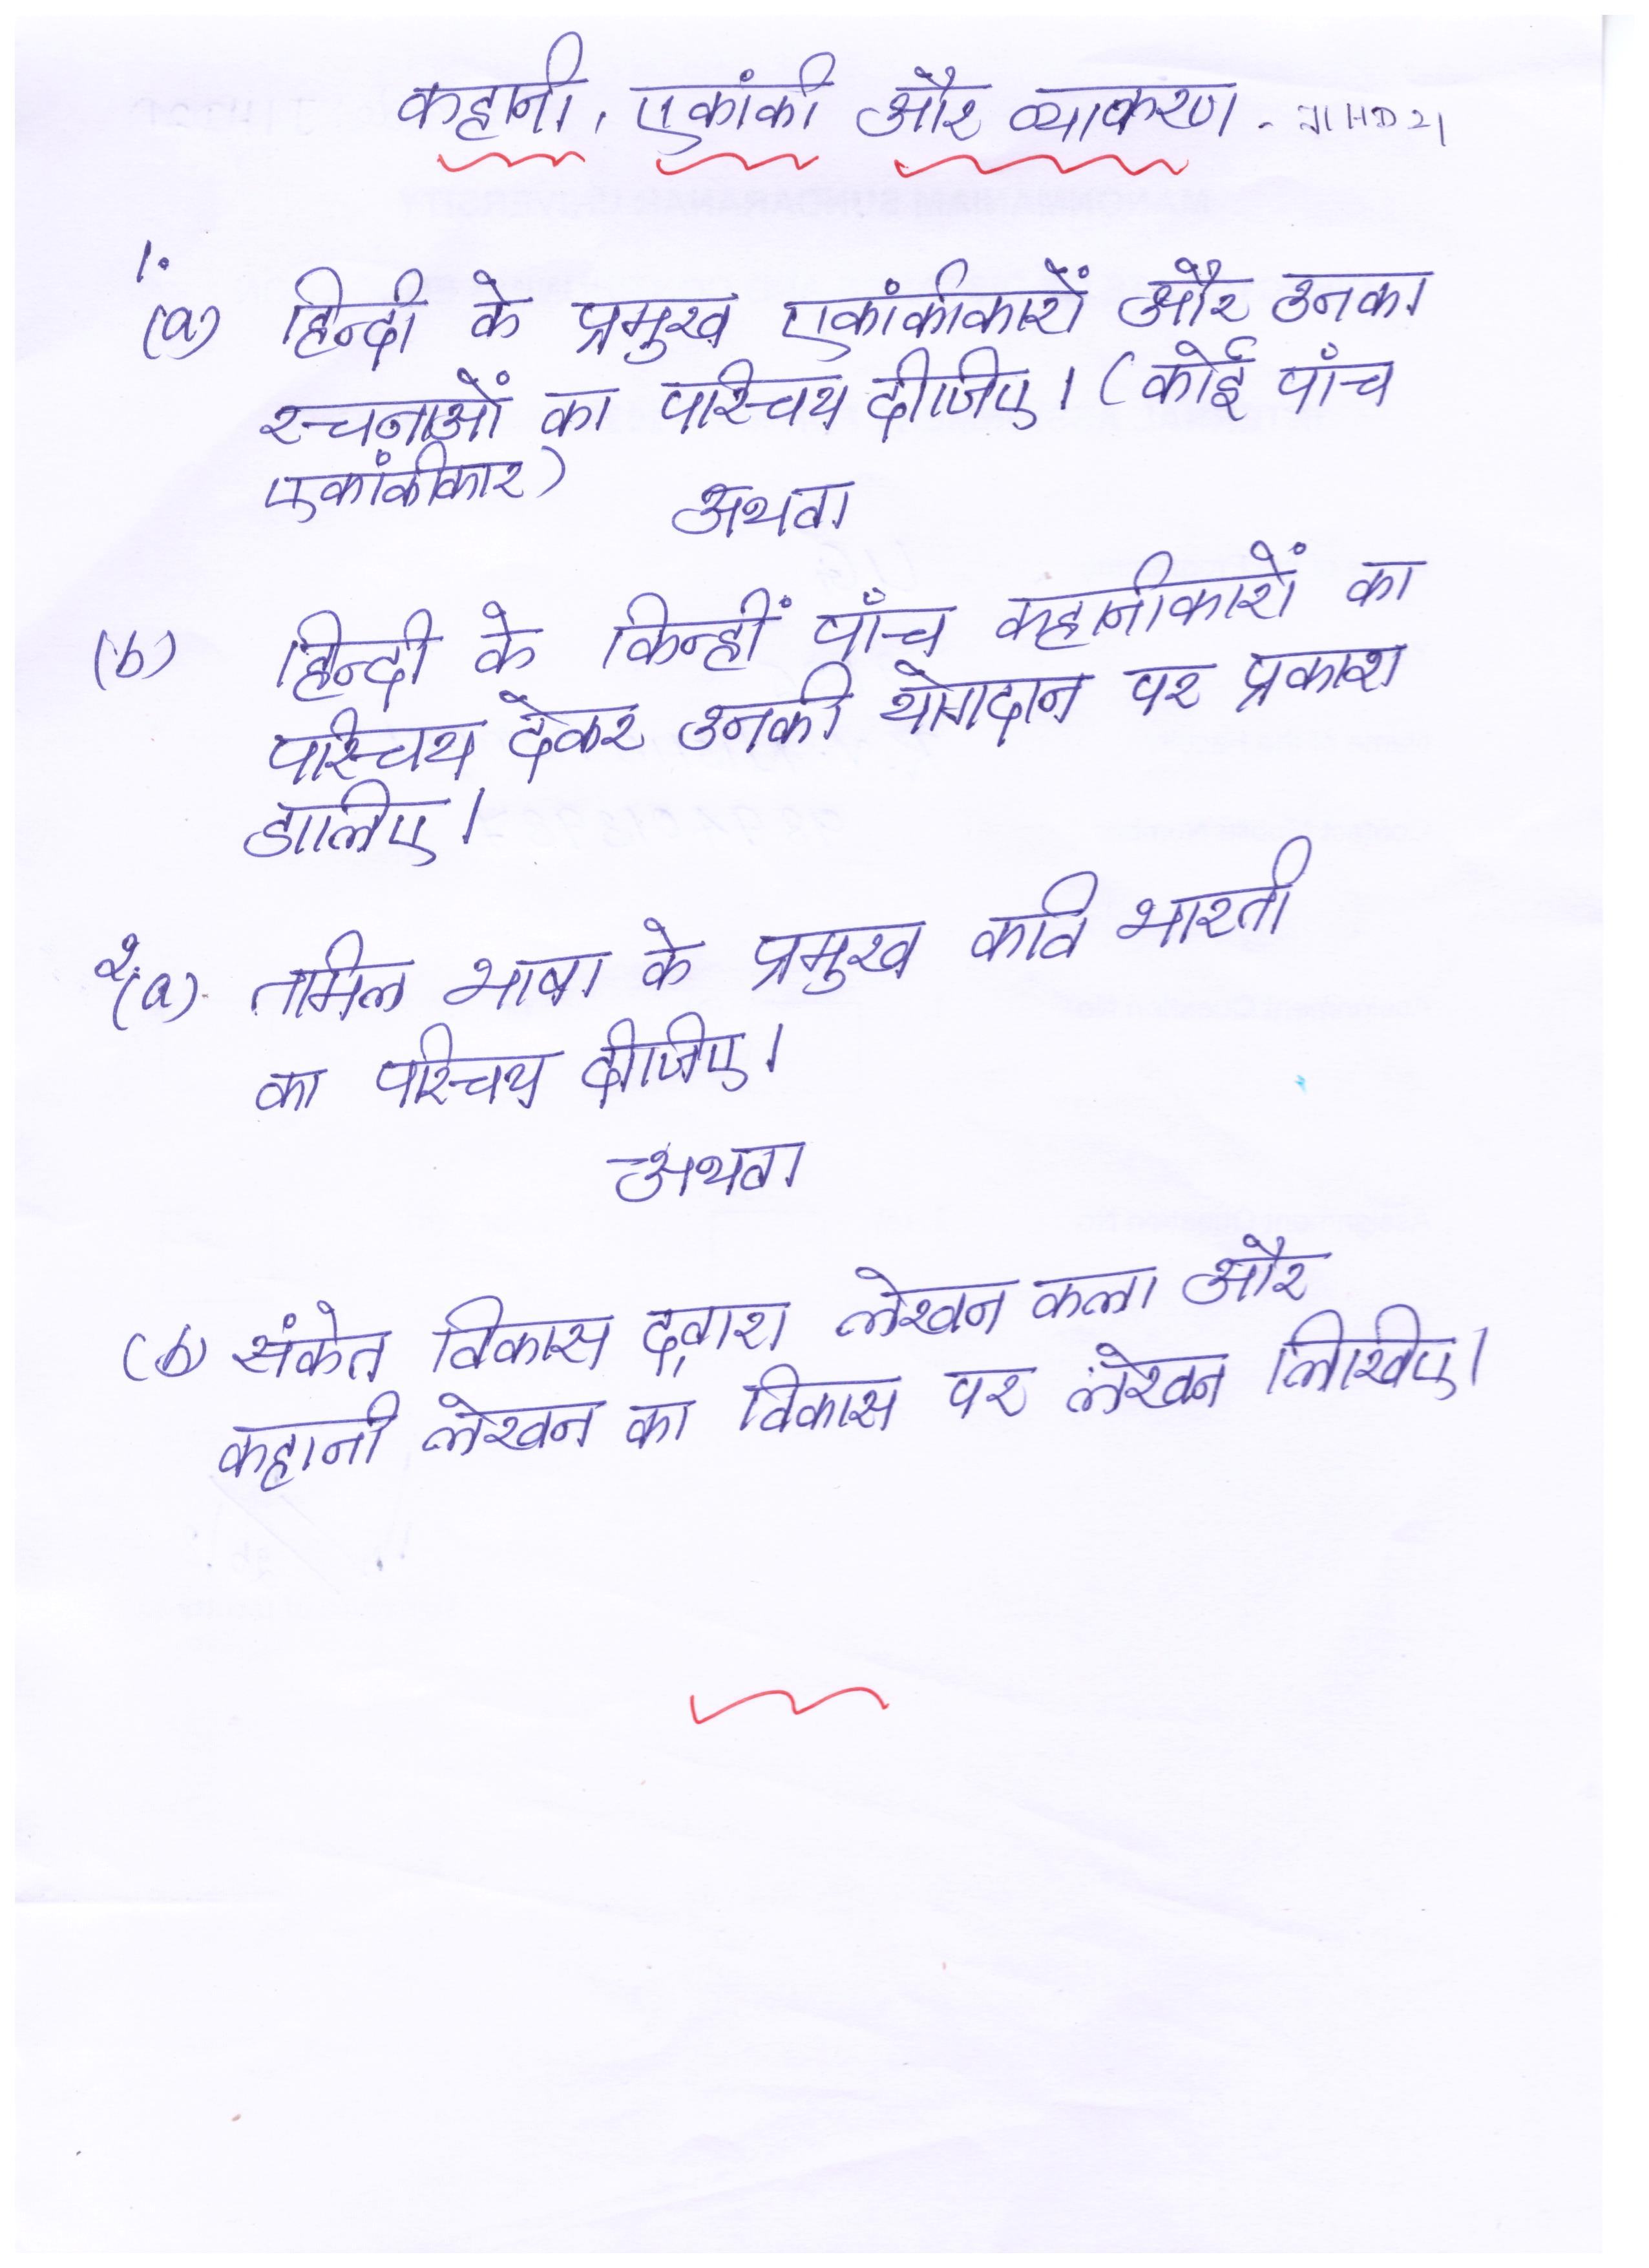 कहानी, एकांकी और व्याकरण - JIHD21
1.
(a) हिन्दी के प्रमुख एकांकीकारों और उनका
रचनाओं का परिचय दीजिए। (कोई पाँच
एकांकीकार)
अथवा
(b) हिन्दी के किन्हीं पाँच कहानीकारों का
परिचय देकर उनकी योगदान पर प्रकाश
डालिए।
2.(a). तमिल भाषा के प्रमुख कवि भारती
का परिचय दीजिए।
अथवा
(b) संकेत विकास द्वारा लेखन कला और
कहानी लेखन का विकास पर लेखन लिखिए।